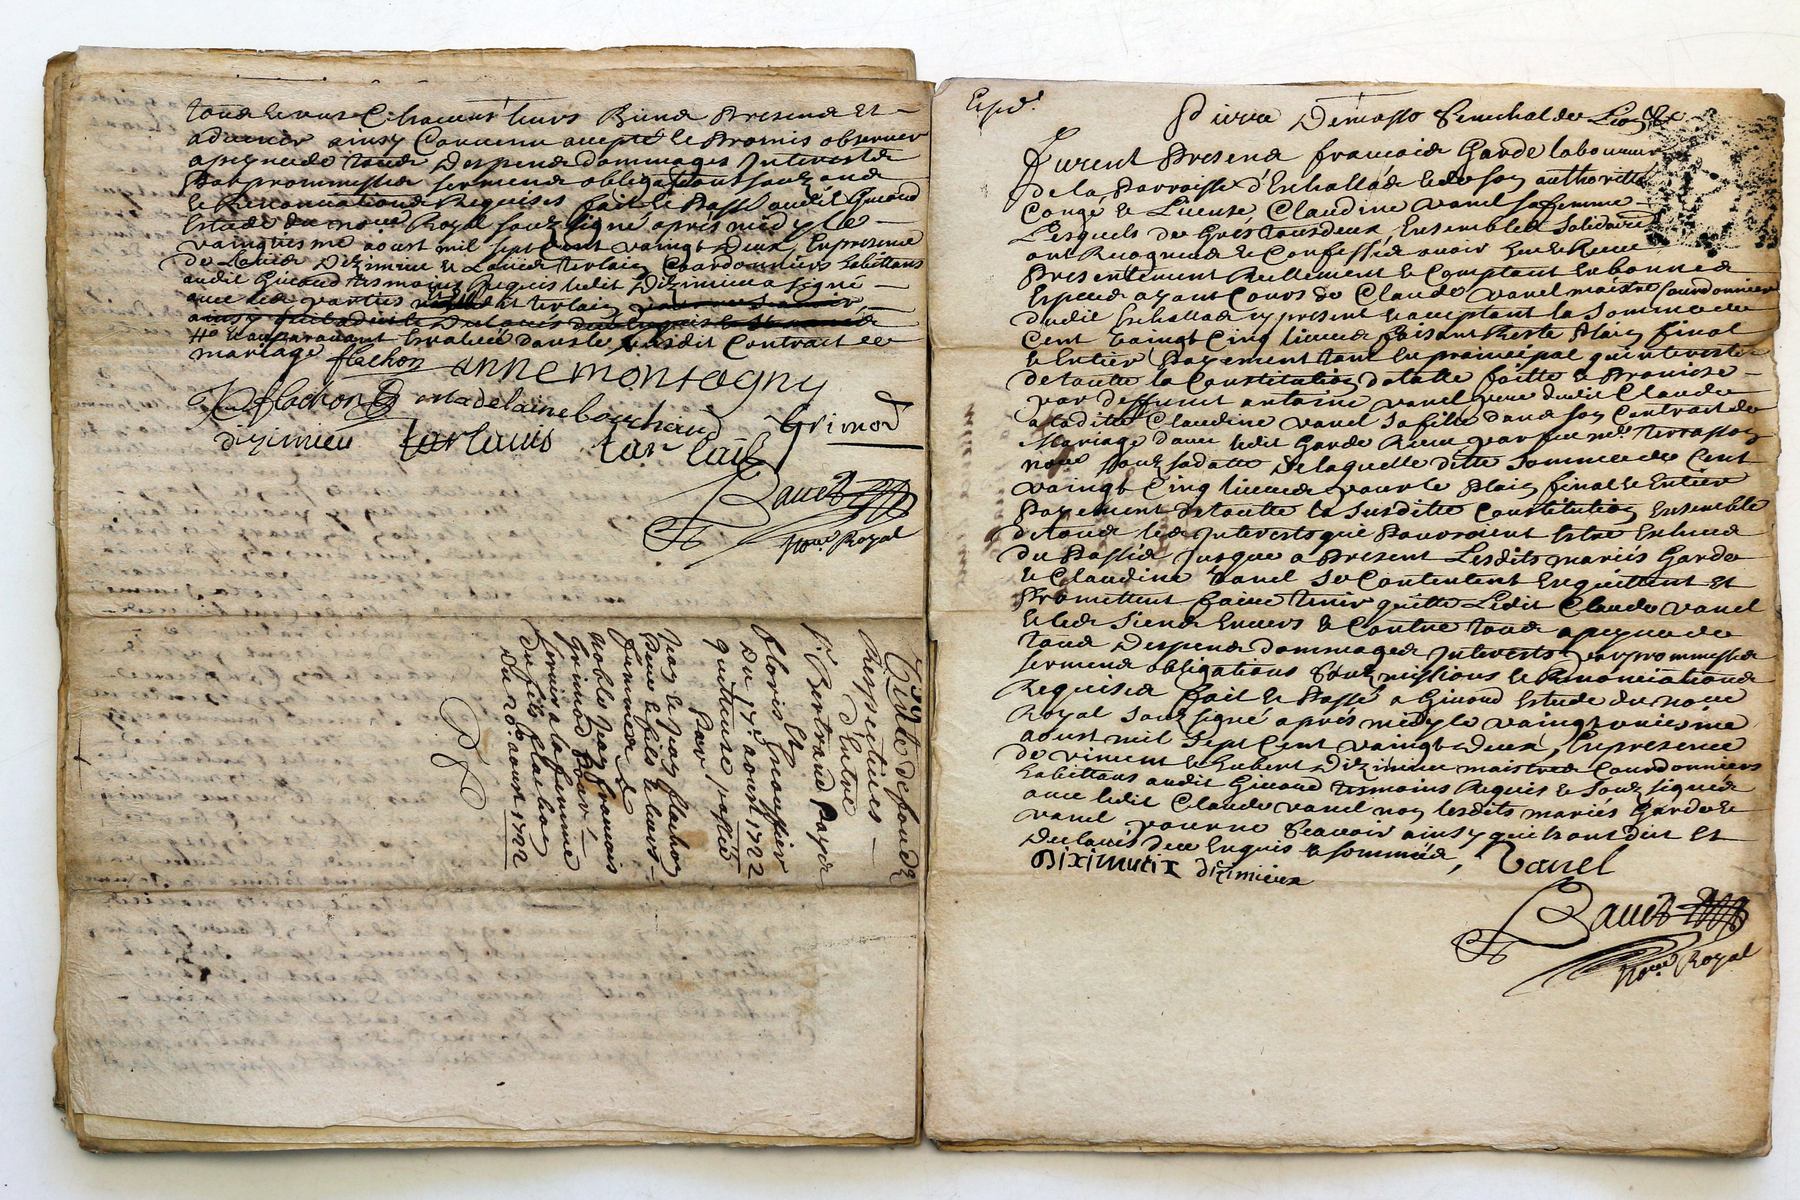 tous leurs biens presens et
advenir ainsy Convenu accepté et Promis observer
a peyne de tous Despens dommages Interests
Par prommesses serments obligations
et Renonciations Requises fait et Passé audit Giuord
Estude du no.re Royal sous signé après midy le
vaingtiesme aoust mil sept Cent vaingt Deux, En presence
de Dizimieu et Couardonniers habittans
audit Giuord tesmoins Requis ledit Dizimieu a signé
avec les parties
auparavant dans le susdit Contract de
mariage
flachon anne montagny
flachon madelaine bouchard Grimod
dizimieu
Bauet
No.re Royal
39
Quitte de fonds
Respectives
d'Entre
Sr. Bertrand Payer
floris Et
Du 17e. aoust 1722
quittance passée
Par
Jean et Jean flachon
Pere et fils et leurs
femmes à
noble Jean francois
Grimod
et a la femme
du fils flachon
Du 20e. aoust 1722
Expé.
Pierre Demasso Senechal de Lion &c
furent Presens francois Garde laboureur
de la Parroisse d'Echallas et de son authoritté
Congé et License Claudine vanel sa femme
Lesquels de Gré tous deux Ensemble et Solidaire
ont Recogneus et Confessés avoir heu et Receu
Presentement Reellement et Comptant En bonnes
Especes ayant Cours de Claude vanel maistre Courdonnier
dudit Echallas cy present et acceptant la somme de
Cent vaingt Cinq livres faisant Reste Plain final
et Entier Payement tant En prainsipal qu'interests
de toutte la Constitution dotalle faitte et Promise
par deffunt antoine vanel pere dudit Claude
a laditte Claudine vanel sa fille dans son Contrait de
Mariage d'avec ledit Garde Receu par feu me. terrasson
no.re sous sa datte De laquelle ditte somme de Cent
vaingt Cinq livres pour le Plain final et Entier
Payement de toutte la susditte Constitution Ensemble
de tous les Interests que Pouvroient Estre Escheus
du Passé Jusque a Present Lesdits mariés Garde
et Claudine vanel se Contentent En quittent Et
Promettent faire tenir quitte Ledit Claude vanel
et les siens Envers et Contre tous a peyne de
tous Despens dommages Interests par prommesses
serments obligations soubmissions et Renonciations
Requises fait et Passé a Giuord Estude du no.re
Royal sous signé après midy le vaingt uniesme
aoust mil sept Cent vaingt Deux, En presence
de vincent et hubert Dizimieu maistres Courdonniers
habittans audit Giuord tesmoins Requis et sous signés
avec ledit Claude vanel non lesdits mariés Garde et
vanel pour ne scavoir ainsy qu'ils ont dit Et
Declarés de ce Enquis et sommés, Vanel
dizimieux
Bauet
No.re Royal